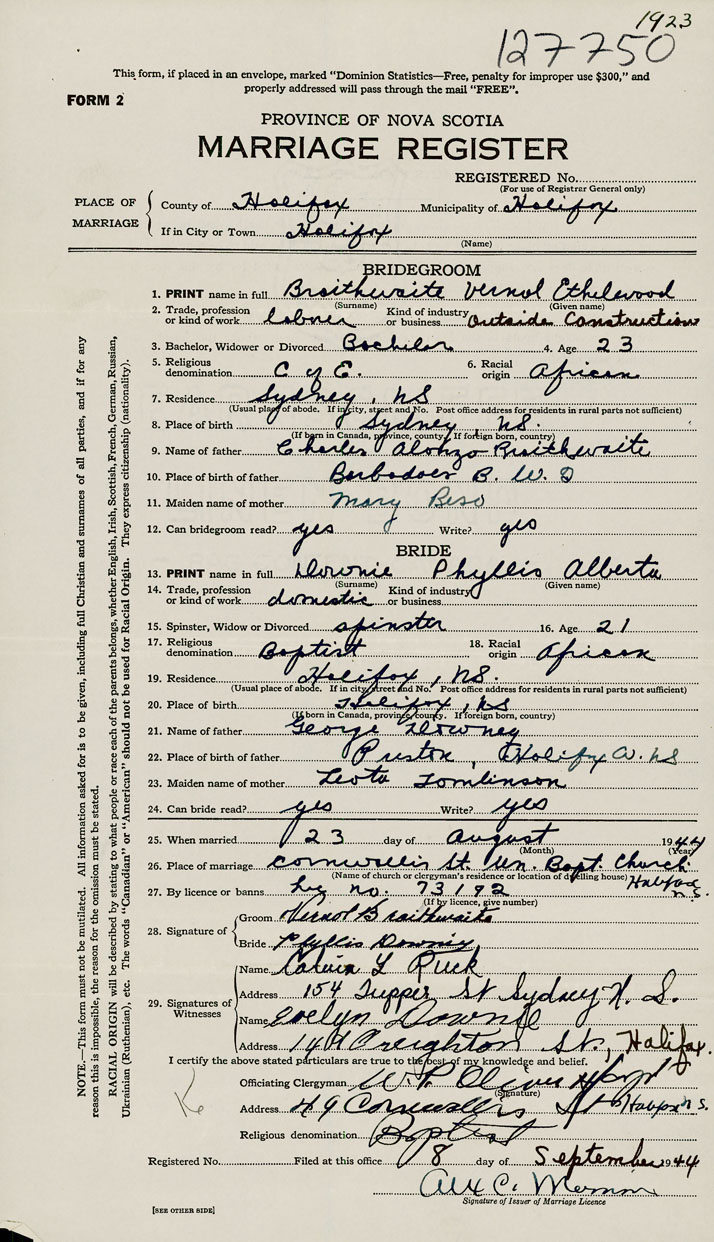 1923
127750
This form, if placed in an envelope, marked "Dominion Statistics—Free, penalty for improper use $300," and
properly addressed will pass through the mail "FREE".
FORM 2
PROVINCE OF NOVA SCOTIA
MARRIAGE REGISTER
REGISTERED No.
(For use of Registrar General only)
PLACE OF MARRIAGE
County of Halifax Municipality of Halifax
If in City or Town Halifax
(Name)
BRIDEGROOM
1. PRINT name in full Braithwaite Vernol Ethelwood
(Surname) (Given name)
2. Trade, profession or kind of work labner Kind of industry or business Outside Construction
3. Bachelor, Widower or Divorced Bachelor 4. Age 23
5. Religious denomination C of E. 6. Racial origin African
7. Residence Sydney, NS
(Usual place of abode. If in city, street and No. Post office address for residents in rural parts not sufficient)
8. Place of birth Sydney NS.
(If born in Canada, province, county. If foreign born, country)
9. Name of father Charles Alonzo Braithwaite
10. Place of birth of father Barbadoes B. W. I
11. Maiden name of mother Mary Beso
12. Can bridegroom read? yes Write? yes
BRIDE
13. PRINT name in full Downie Phyllis Alberta
(Surname) (Given name)
14. Trade, profession or kind of work domestic Kind of industry or business
15. Spinster, Widow or Divorced spinster 16. Age 21
17. Religious denomination Baptist 18. Racial origin African
19. Residence Halifax, NS.
(Usual place of abode. If in city, street and No. Post office address for residents in rural parts not sufficient)
20. Place of birth Halifax, NS
(If born in Canada, province, county. If foreign born, country)
21. Name of father George Downey
22. Place of birth of father Preston, Halifax Co. NS
23. Maiden name of mother Leota Tomlinson
24. Can bride read? yes Write? yes
25. When married 23 day of August 1944
(Month) (Year)
26. Place of marriage Cornwallis St. Un. Bapt. Church
(Name of church or clergyman's residence or location of dwelling house) Halifax N.S.
27. By licence or banns Lic no. 73192
(If by licence, give number)
28. Signature of Groom Vernol Braithwaite
Bride Phyllis Downie
29. Signatures of Witnesses
Name Calvin L Ruck
Address 154 Tupper St Sydney N. S.
Name Evelyn Downie
Address Creighton St., Halifax.
I certify the above stated particulars are true to the best of my knowledge and belief.
Officiating Clergyman W. P. Oliver
(Signature)
Address 49 Cornwallis St Halifax N.S.
Religious denomination Baptist
Registered No. Filed at this office 8 day of September 1944
Alex C.
Signature of Issuer of Marriage Licence
[SEE OTHER SIDE]
NOTE.—This form must not be mutilated. All information asked for is to be given, including full Christian and surnames of all parties, and if for any
reason this is impossible, the reason for the omission must be stated.
RACIAL ORIGIN will be described by stating to what people or race each of the parents belongs, whether English, Irish, Scottish, French, German, Russian,
Ukrainian (Ruthenian), etc. The words "Canadian" or "American" should not be used for Racial Origin. They express citizenship (nationality).